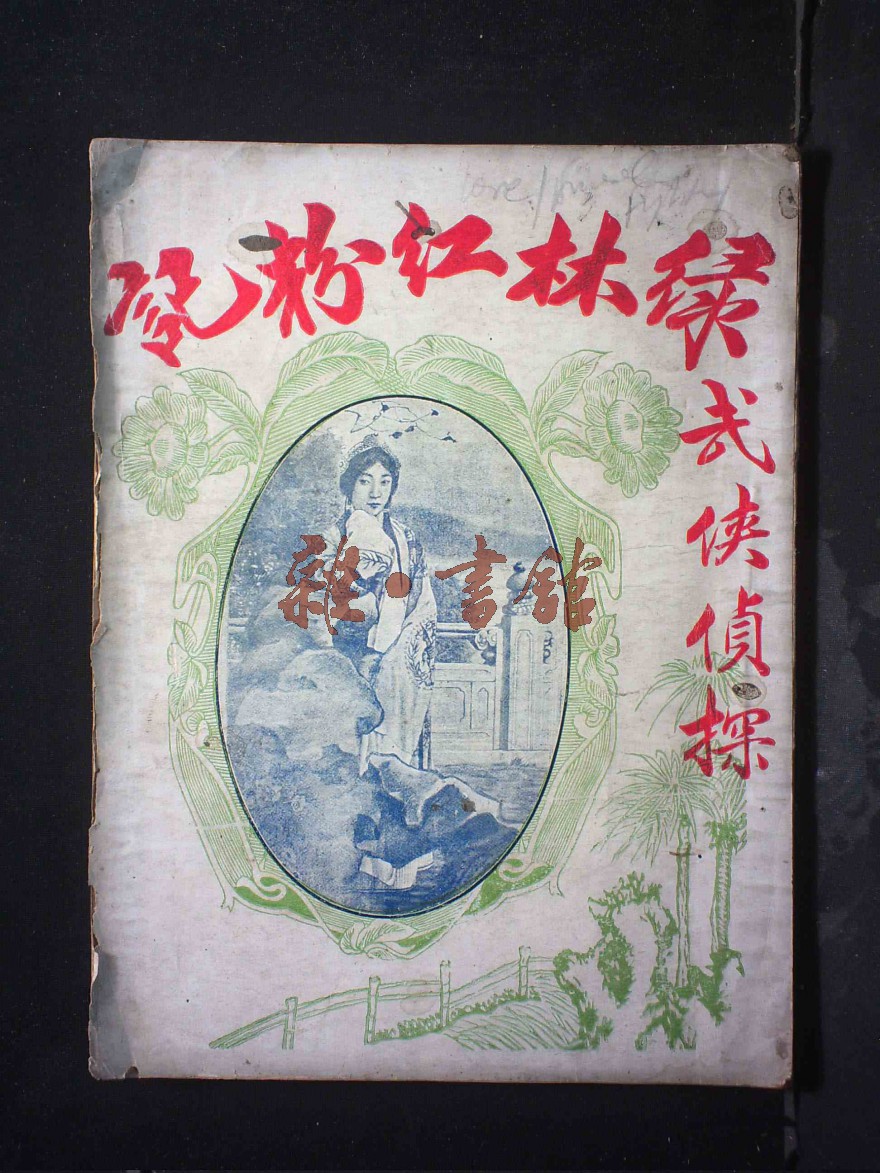 綠林紅粉
武俠偵探
雜·書館
love